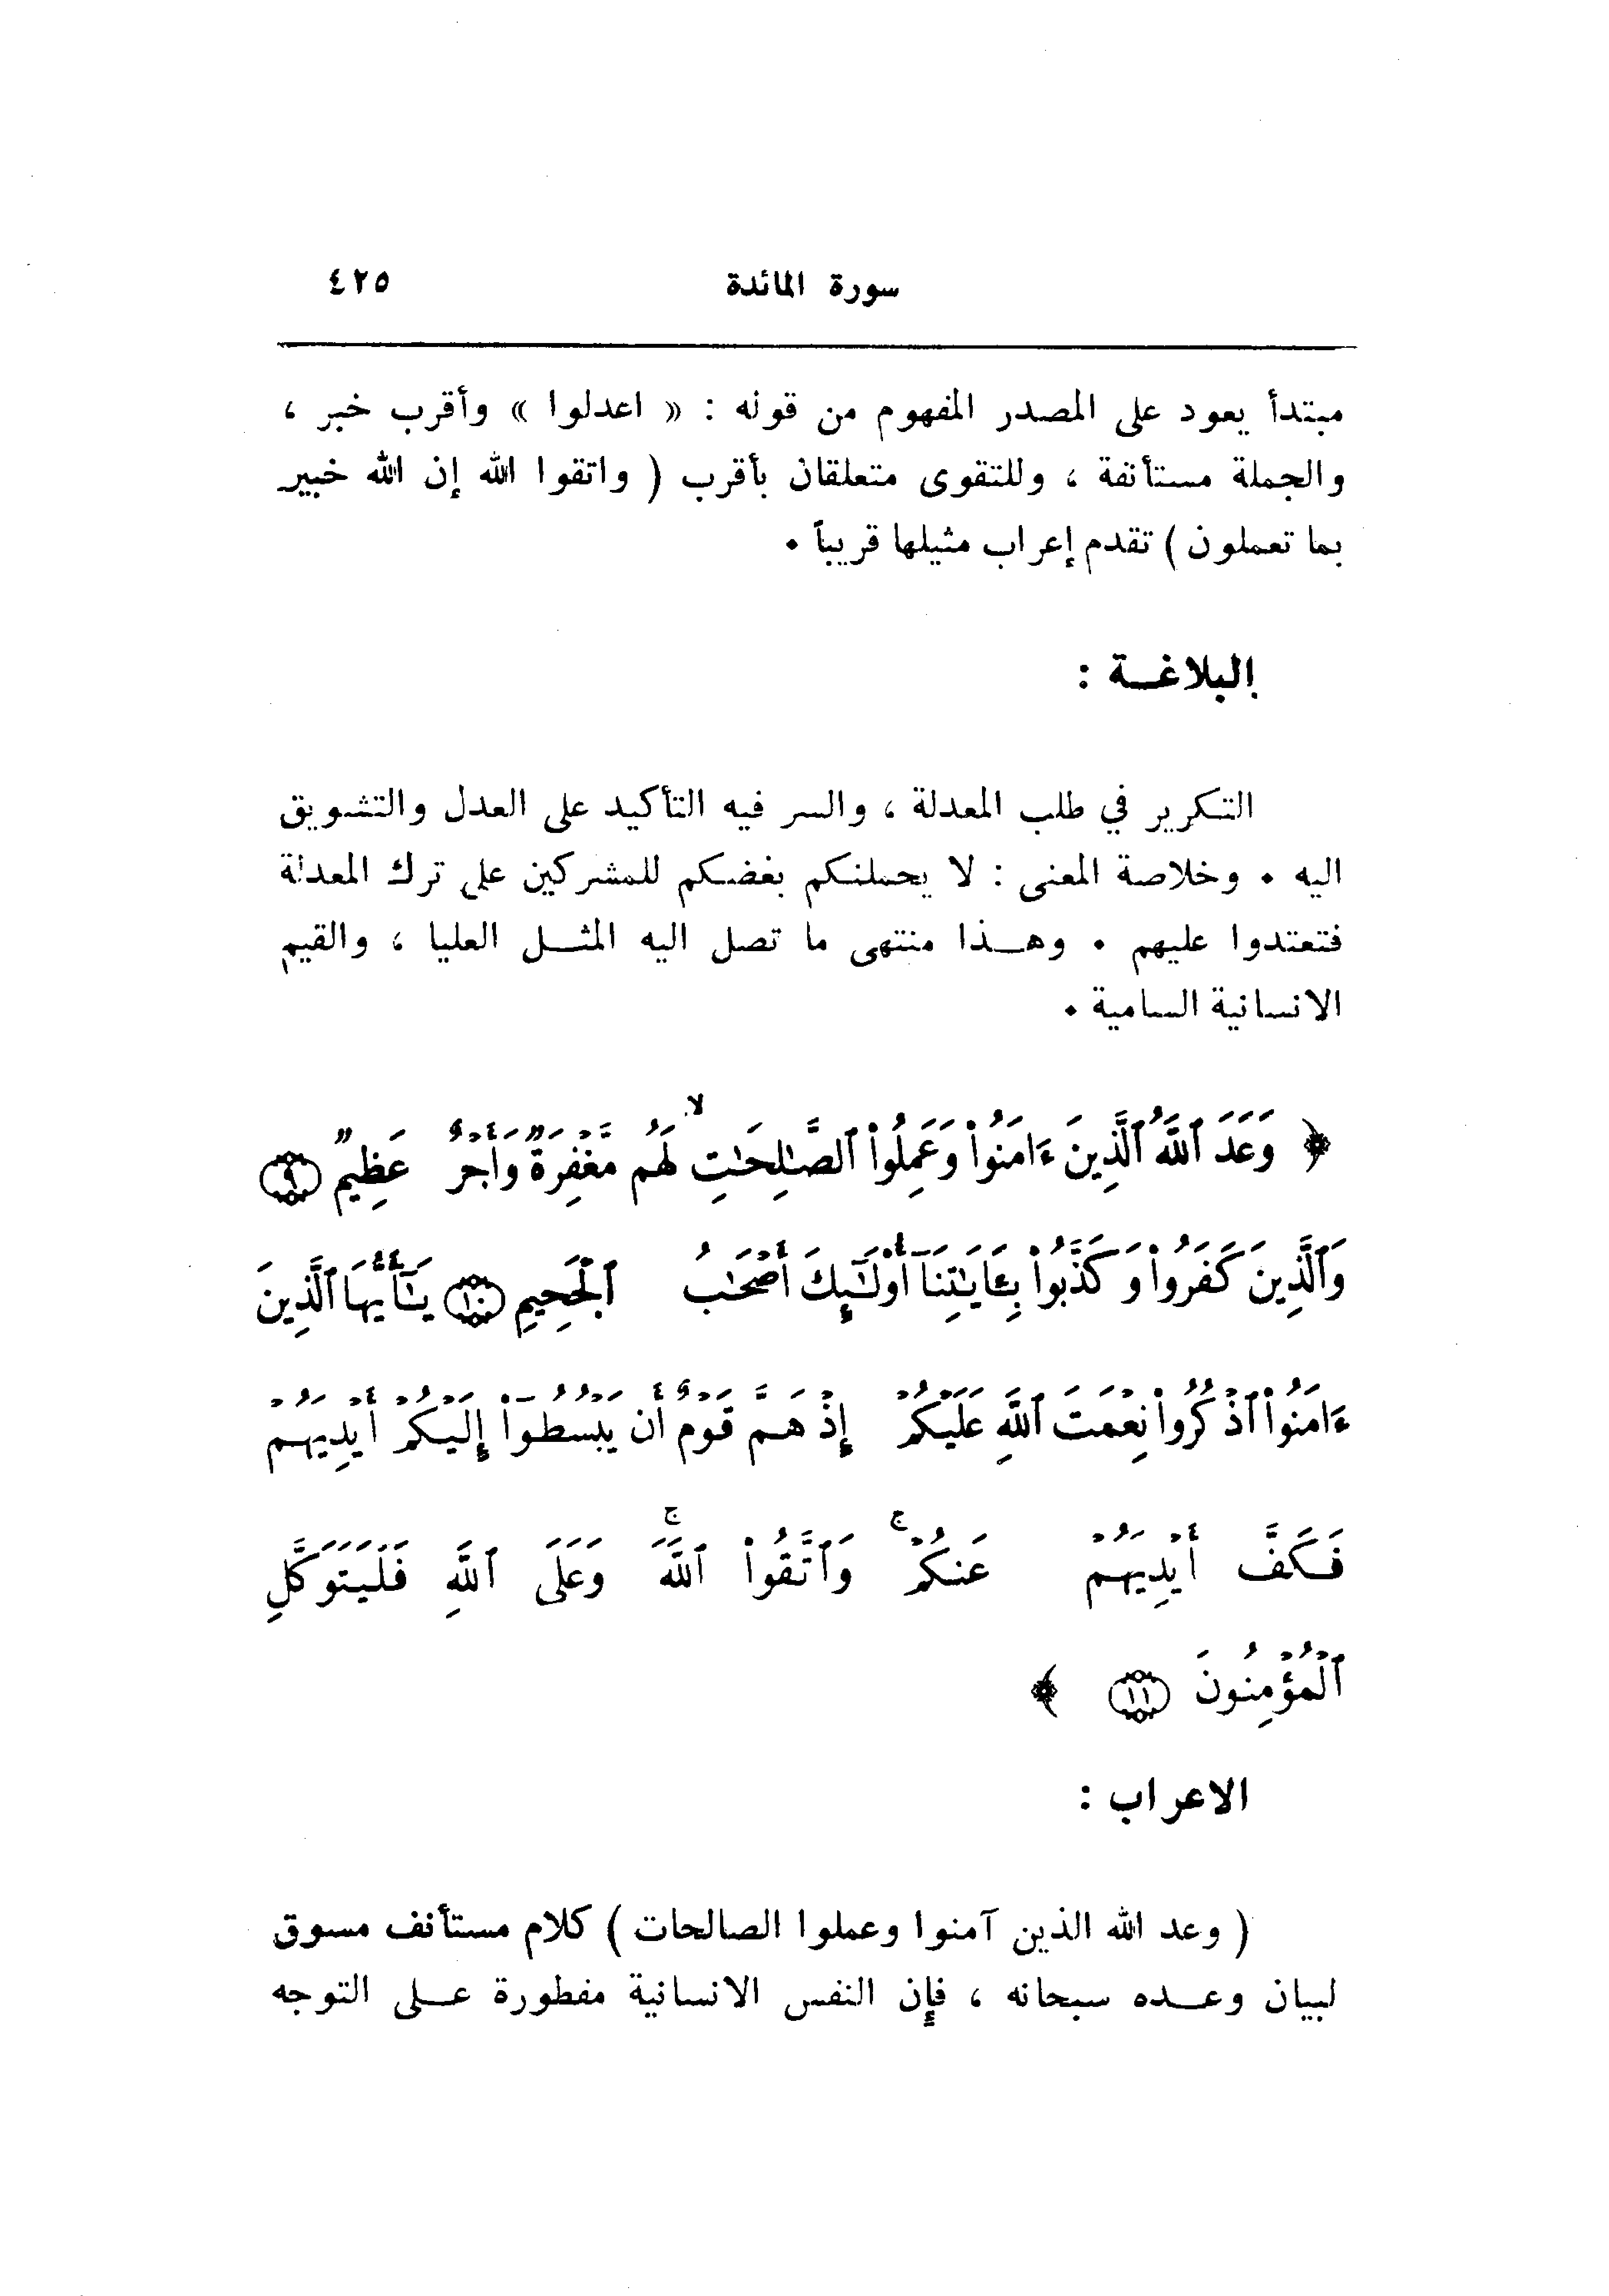 سورة المائدة ٤٢٥
مبتدأ يعود على المصدر المفهوم من قوله : « اعدلوا » وأقرب خبر ،
والجملة مستأنفة ، وللتقوى متعلقان بأقرب ( واتقوا الله إن الله خبير
بما تعملون ) تقدم إعراب مثيلها قريباً .
البلاغــة :
التكرير في طلب المعدلة ، والسر فيه التأكيد على العدل والتشويق
اليه . وخلاصة المعنى : لا يحملنكم بغضكم للمشركين على ترك المعدلة
فتعتدوا عليهم . وهــذا منتهى ما تصل اليه المثــل العليا ، والقيم
الانسانية السامية .
﴿ وَعَدَ ٱللَّهُ ٱلَّذِينَ ءَامَنُوا۟ وَعَمِلُوا۟ ٱلصَّـٰلِحَـٰتِ ۙ لَهُم مَّغْفِرَةٌ وَأَجْرٌ عَظِيمٌ ٩
وَٱلَّذِينَ كَفَرُوا۟ وَكَذَّبُوا۟ بِـَٔايَـٰتِنَآ أُو۟لَـٰٓئِكَ أَصْحَـٰبُ ٱلْجَحِيمِ ١٠ يَـٰٓأَيُّهَا ٱلَّذِينَ
ءَامَنُوا۟ ٱذْكُرُوا۟ نِعْمَتَ ٱللَّهِ عَلَيْكُمْ إِذْ هَمَّ قَوْمٌ أَن يَبْسُطُوٓا۟ إِلَيْكُمْ أَيْدِيَهُمْ
فَكَفَّ أَيْدِيَهُمْ عَنكُمْ ۚ وَٱتَّقُوا۟ ٱللَّهَ ۚ وَعَلَى ٱللَّهِ فَلْيَتَوَكَّلِ
ٱلْمُؤْمِنُونَ ١١ ﴾
الاعراب :
( وعد الله الذين آمنوا وعملوا الصالحات ) كلام مستأنف مسوق
لبيان وعــده سبحانه ، فإن النفس الانسانية مفطورة عــلى التوجه